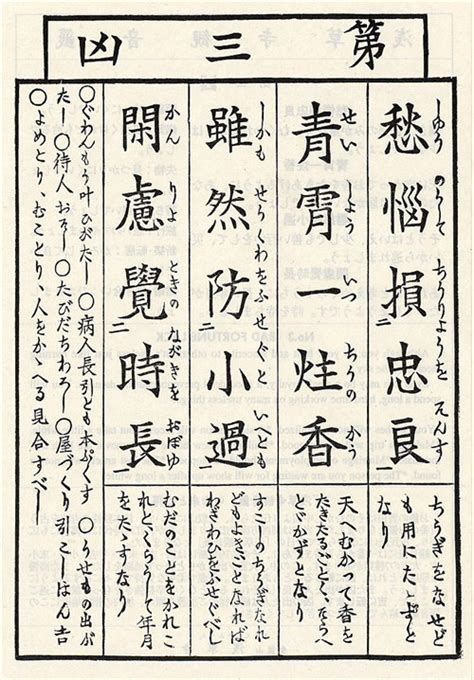 第三凶
しゆうのうして ちうりようを そんす
愁悩損忠良
ちうぎをなせど
も用にたゝず と
なり
せいしよう いつちうの かう
青霄一炷香
天へむかつて香を
たきたるごとく、
とどかずとなり
しかも せうくわをふせぐと いへども
雖然防小過
二 一
すこしのちうぎたれ
どもよき、ことなれば
わざわひをふせぐべし
かんりよ ときの ながきを おぼゆ
閑慮覺時長
二 一
むだのことをかれこ
れと、くらうして年月
をたゝすなり
○ぐわんも叶ひがたし ○病人長引とも本ぷくす ○うせもの出が
たし ○待人おそし ○たびだちわろし ○屋づくり引こしはん吉
○よめとり、むことり、人をかゝへる見合すべし